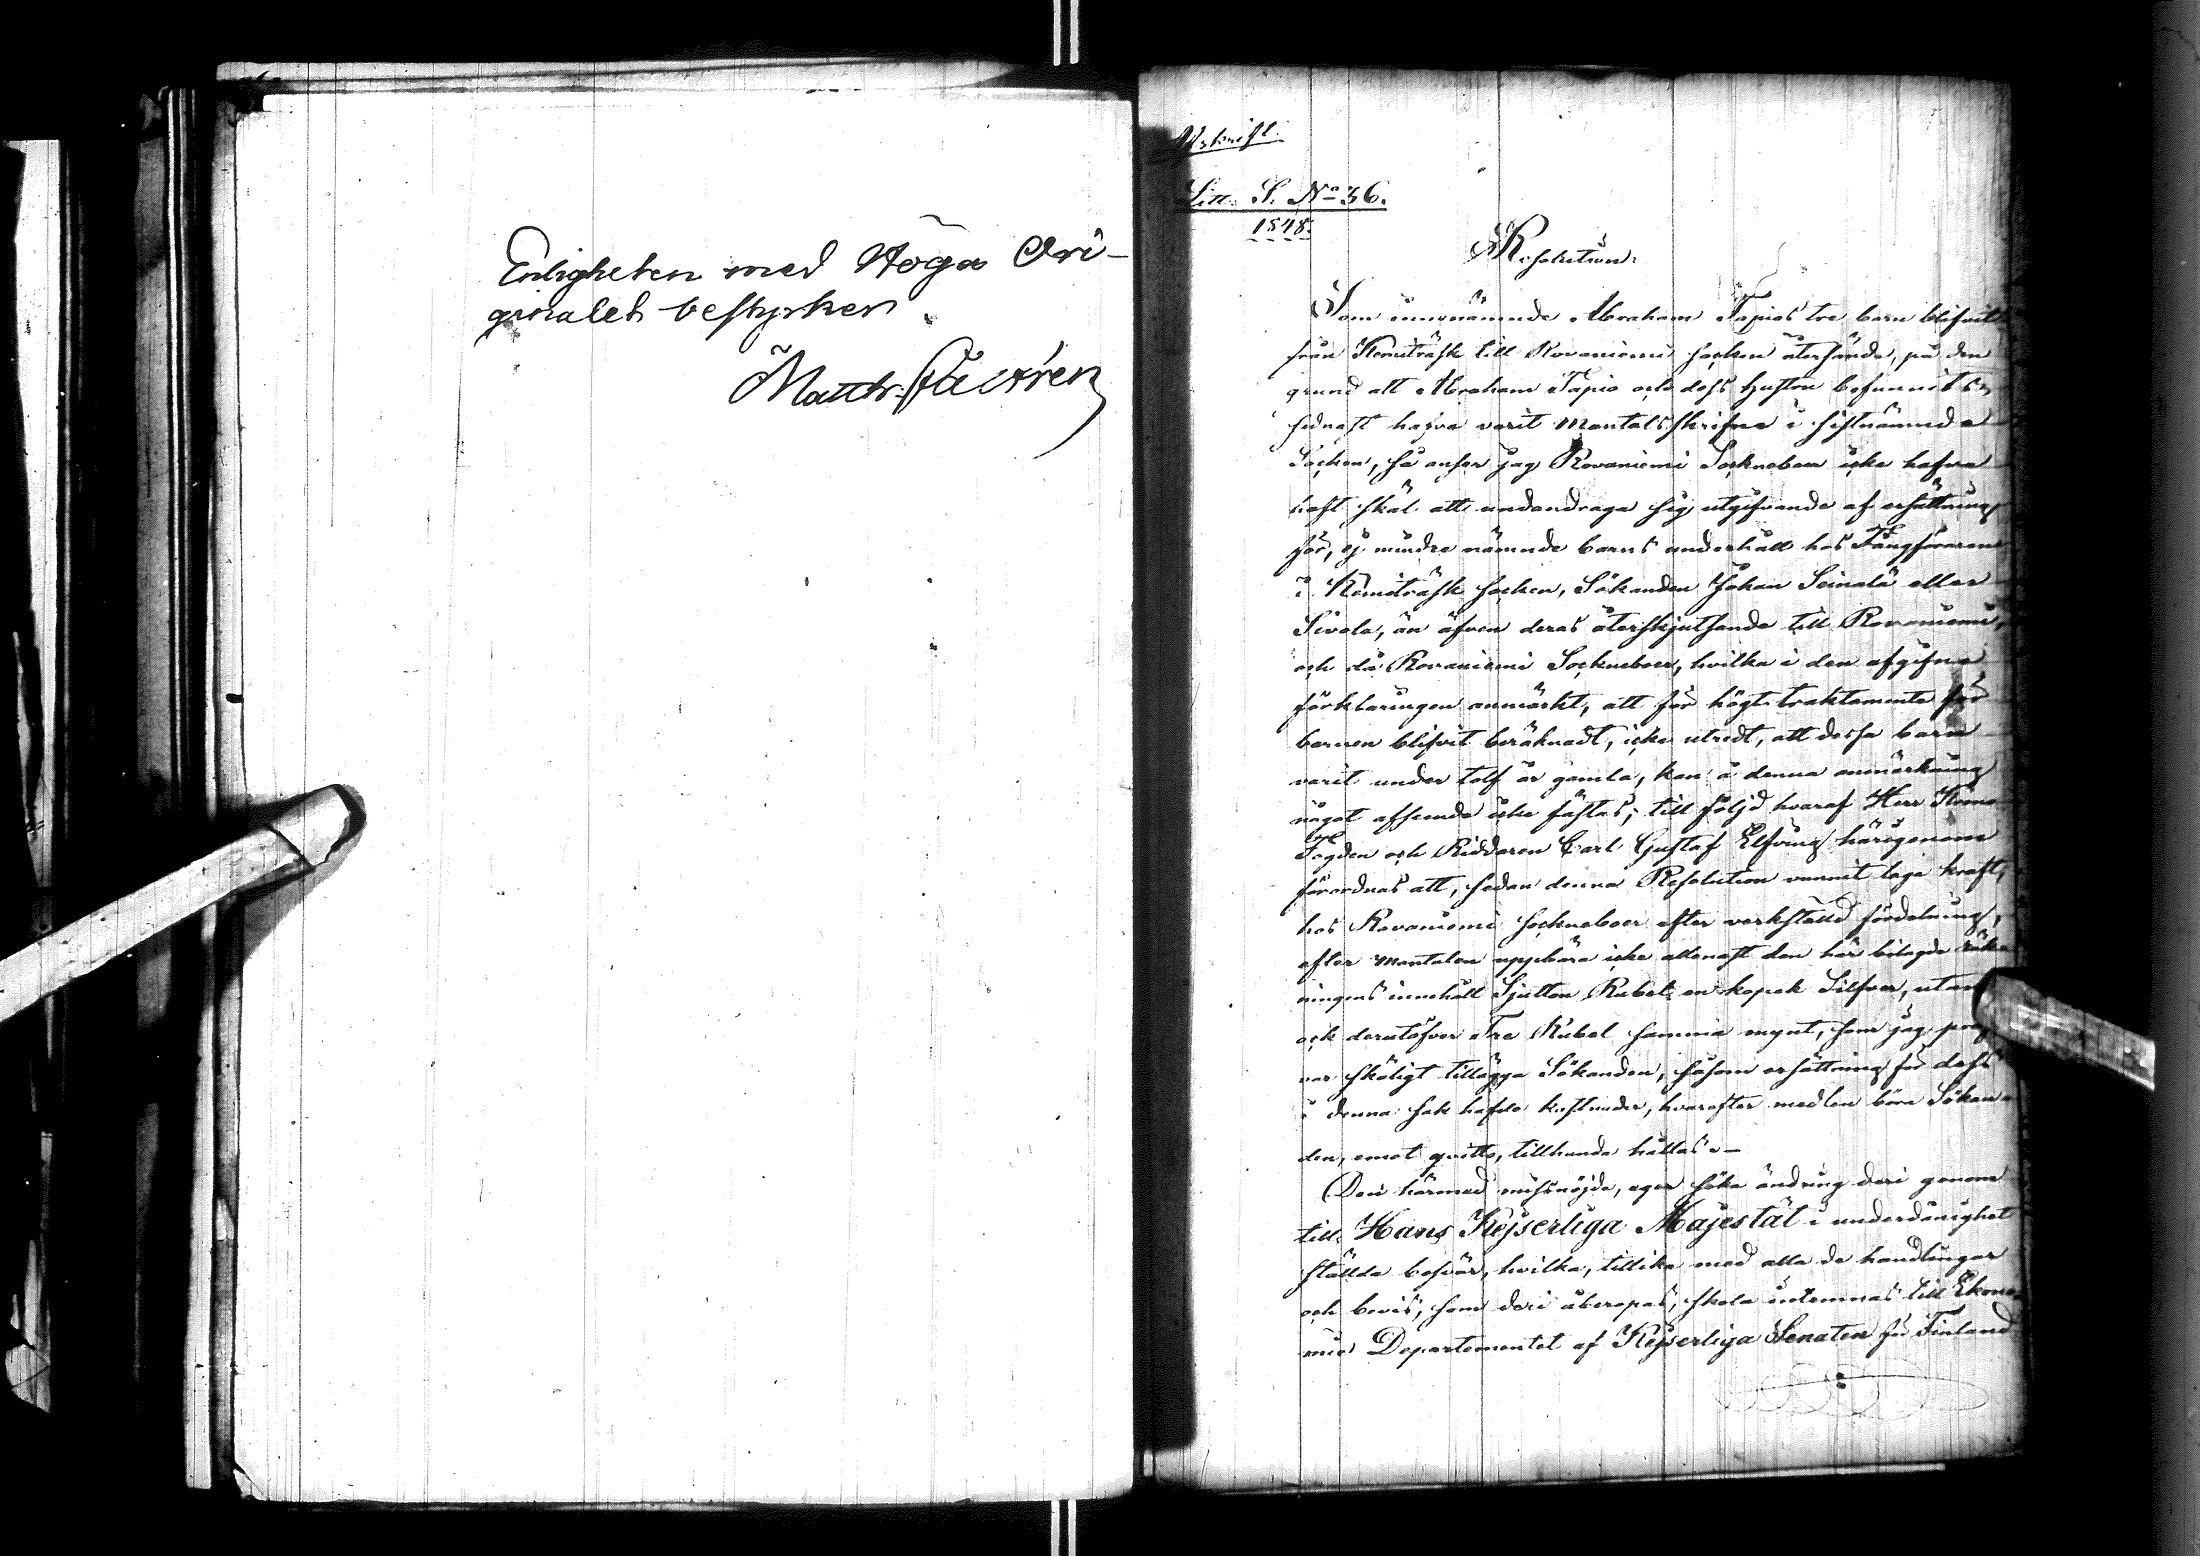 Enligheten med Höga Ori-
ginalet bestyrker
Matth:
Afskrift.
Litt. S. No 36.
1848.
Resolution.
Som innenämnde Abraham Tapios tre barn blifvit
från Kemiträsk till Rovaniemi socken återsände, på den
grund att Abraham Tapio och dess hustru befunnits
sednast hafva varit mantalsskrifne i sistnämnde
Socken, så anser jag Rovaniemi Sockneboer icke hafva
haft skäl att undandraga sig utgifvande af ersättning
för, ej mindre nämnde barns underhåll hos Fångföraren
i Kemiträsk socken, Sökanden Johan Seinälä eller
Sivola, än äfven deras återskjutsande till Rovaniemi,
och då Rovaniemi Sockneboer, hvilka i den afgifne
förklaringen anmärkt, att för högt traktamente för
barnen blifvit beräknadt, icke utredt, att dessa barn
varit under tolf år gamla, kan å denna anmärkning
något afseende icke fästas; till följd hvaraf Herr Krono
Fogden och Riddaren Carl Gustaf Elfving härigenom
förordnas att, sedan denna Resolution vunnit laga kraft,
hos Rovaniemi sockneboer efter verkställd fördelning,
efter mantalen uppbära icke allenast den här bilagde räk-
ningens innehåll Sjutton Rubel en kopek Silfver, utan
ock derutöfver Tre Rubel samma mynt, som jag pröf-
var skäligt tillägga Sökanden, såsom ersättning för dess
i denna sak hafde kostnader, hvarefter medlen böra Sökan-
den, emot qvitto, tillhanda hållas.–
Den härmed missnöjde, eger söka ändring deri genom
till Hans Kejserliga Majestät i underdånighet
ställda besvär, hvilka, tillika med alla de handlingar
och bevis, som deri åberopas, skola inlemnas till Ekono-
mie Departementet af Kejserliga Senaten för Finland